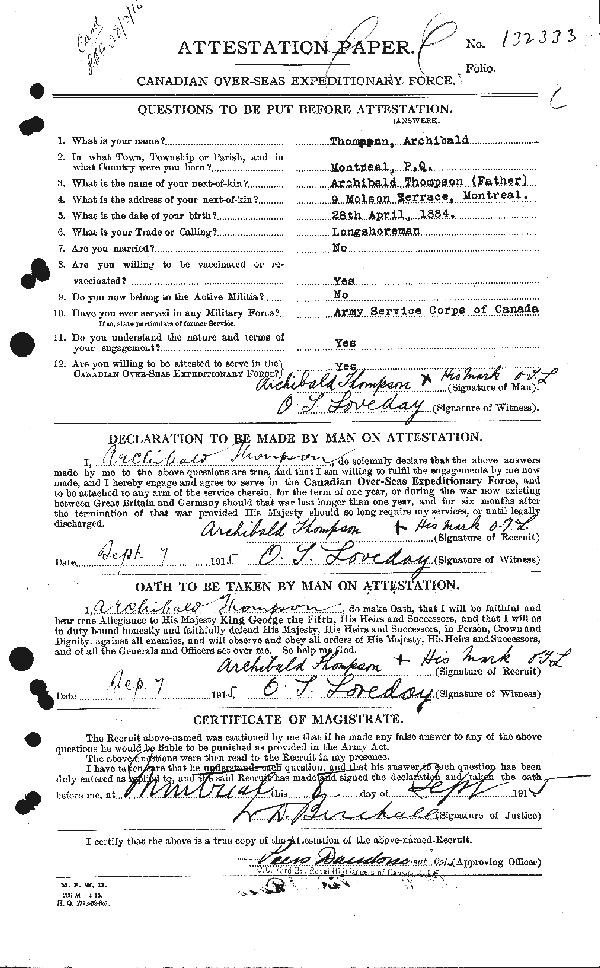 ATTESTATION PAPER.
No. 132333
Folio.
CANADIAN OVER-SEAS EXPEDITIONARY FORCE.
QUESTIONS TO BE PUT BEFORE ATTESTATION.
(ANSWERS).
1. What is your name? Thompson, Archibald
2. In what Town, Township or Parish, and in
what Country were you born? Montreal, P.Q.
3. What is the name of your next-of-kin? Archibald Thompson (Father)
4. What is the address of your next-of-kin? 9 Molson Terrace, Montreal.
5. What is the date of your birth? 28th April, 1884.
6. What is your Trade or Calling? Longshoreman
7. Are you married? No
8. Are you willing to be vaccinated or re-
vaccinated? Yes
9. Do you now belong to the Active Militia? No
10. Have you ever served in any Military Force? Army Service Corps of Canada
If so, state particulars of former Service.
11. Do you understand the nature and terms of
your engagement? Yes
12. Are you willing to be attested to serve in the Yes
CANADIAN OVER-SEAS EXPEDITIONARY FORCE?
Archibald Thompson + His Mark O.T.L (Signature of Man).
O T Loveday (Signature of Witness).
DECLARATION TO BE MADE BY MAN ON ATTESTATION.
I, Archibald Thompson, do solemnly declare that the above answers
made by me to the above questions are true, and that I am willing to fulfil the engagements by me now
made, and I hereby engage and agree to serve in the Canadian Over-Seas Expeditionary Force, and
to be attached to any arm of the service therein, for the term of one year, or during the war now existing
between Great Britain and Germany should that war last longer than one year, and for six months after
the termination of that war provided His Majesty should so long require my services, or until legally
discharged.
Archibald Thompson + His Mark O.T.L
(Signature of Recruit)
Date Sept 7 1915 O. T. Loveday (Signature of Witness)
OATH TO BE TAKEN BY MAN ON ATTESTATION.
I, Archibald Thompson, do make Oath, that I will be faithful and
bear true Allegiance to His Majesty King George the Fifth, His Heirs and Successors, and that I will as
in duty bound honestly and faithfully defend His Majesty, His Heirs and Successors, in Person, Crown and
Dignity, against all enemies, and will observe and obey all orders of His Majesty, His Heirs and Successors,
and of all the Generals and Officers set over me. So help me God.
Archibald Thompson + His Mark O.T.L
(Signature of Recruit)
Date Sep. 7 1915 O. T. Loveday (Signature of Witness)
CERTIFICATE OF MAGISTRATE.
The Recruit above-named was cautioned by me that if he made any false answer to any of the above
questions he would be liable to be punished as provided in the Army Act.
The above questions were then read to the Recruit in my presence.
I have taken care that he understands each question, and that his answer to each question has been
duly entered as replied to, and the said Recruit has made and signed the declaration and taken the oath
before me, at Montreal this day of Sept 1915
(Signature of Justice)
I certify that the above is a true copy of the Attestation of the above-named Recruit.
(Approving Officer)
M. F. W. 23.